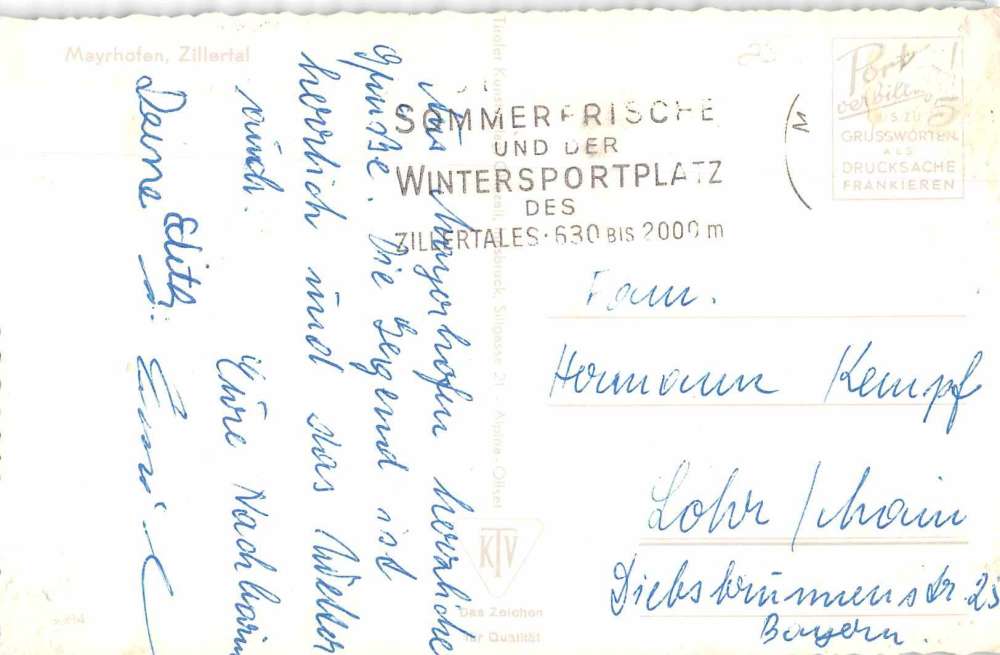 Mayrhofen, Zillertal
Aus Mayerhofen herzliche
Grüße. Die Gegend ist
herrlich und das Wetter
auch.
Eure Nachbarin
Deine Edith u.
SOMMERFRISCHE
UND DER
WINTERSPORTPLATZ
DES
ZILLERTALES · 630 BIS 2000 m
Porto
verbilligt!
BIS ZU 5
GRUSSWORTEN
ALS
DRUCKSACHE
FRANKIEREN
Fam.
Hermann Kempf
Lohr / Main
Diebsbrunnenstr. 23
Bayern.
Innsbruck, Sillgasse 21 - Alpina-Offset
KTV
Das Zeichen
für Qualität